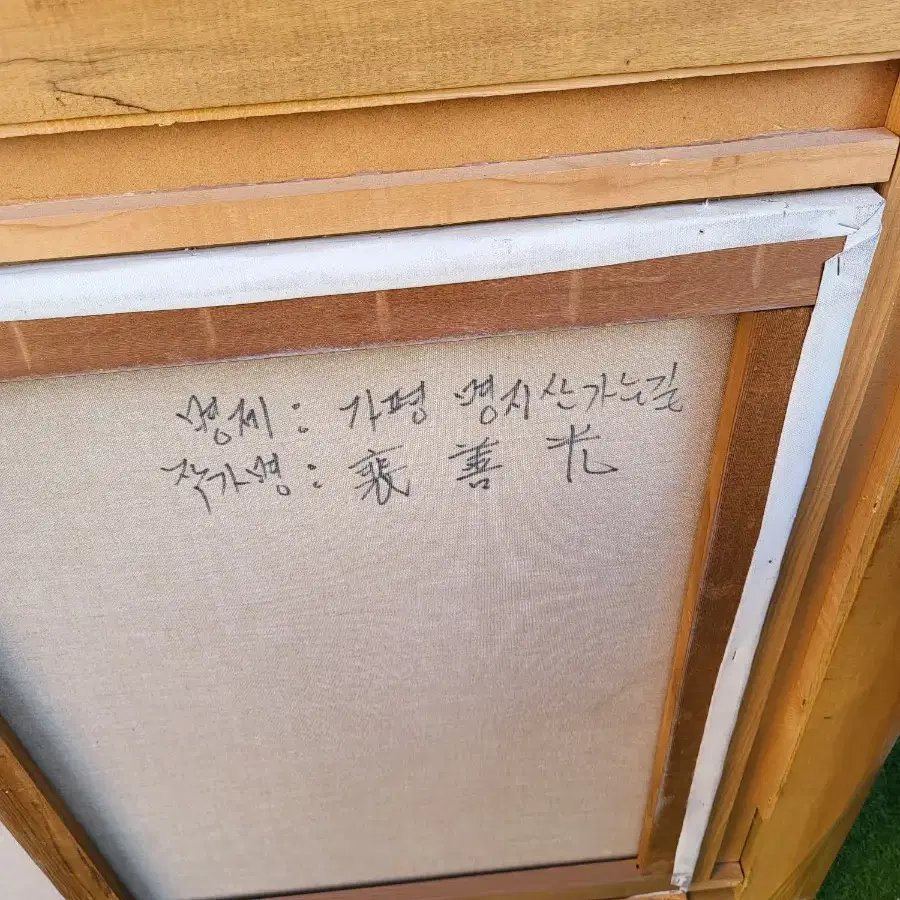 명제 : 가평 명지산가는길
작가명 : 裵 善 光